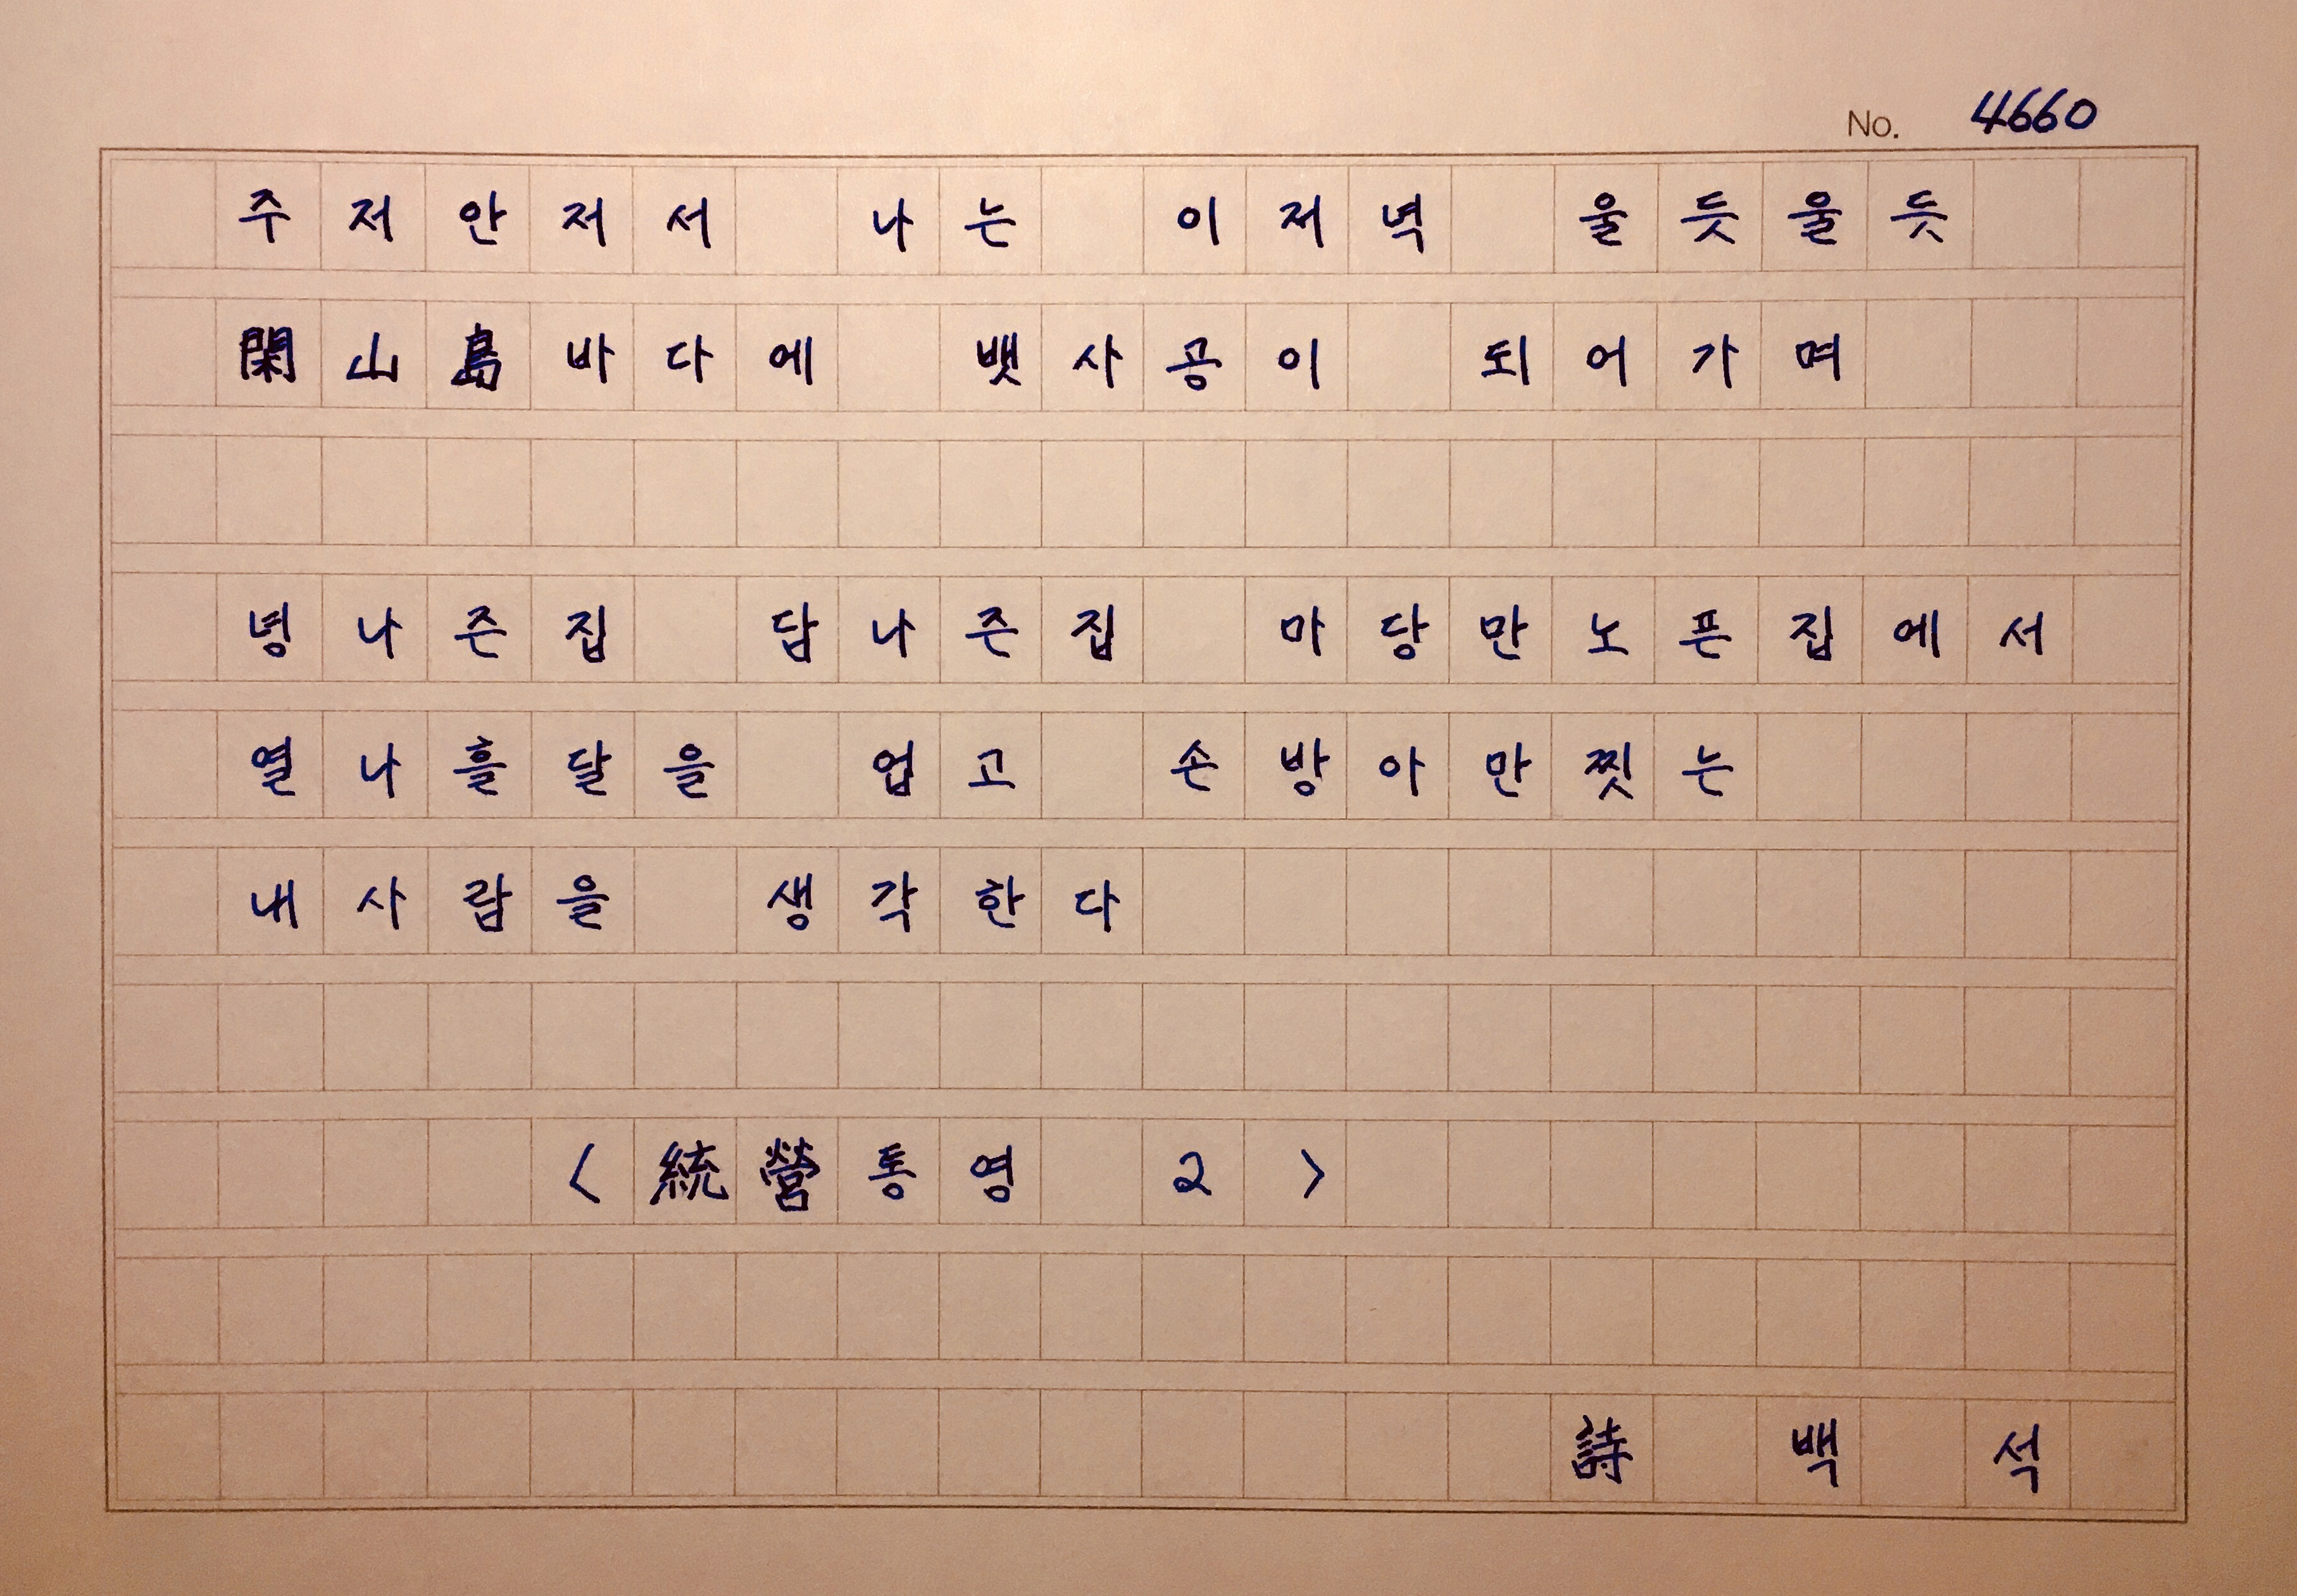 No. 4660
주저안저서 나는 이저녁 울듯울듯
閑山島바다에 뱃사공이 되어가며
녕나즌집 담나즌집 마당만노픈집에서
열나흘달을 업고 손방아만찟는
내사람을 생각한다
〈統營통영 2〉
詩 백 석